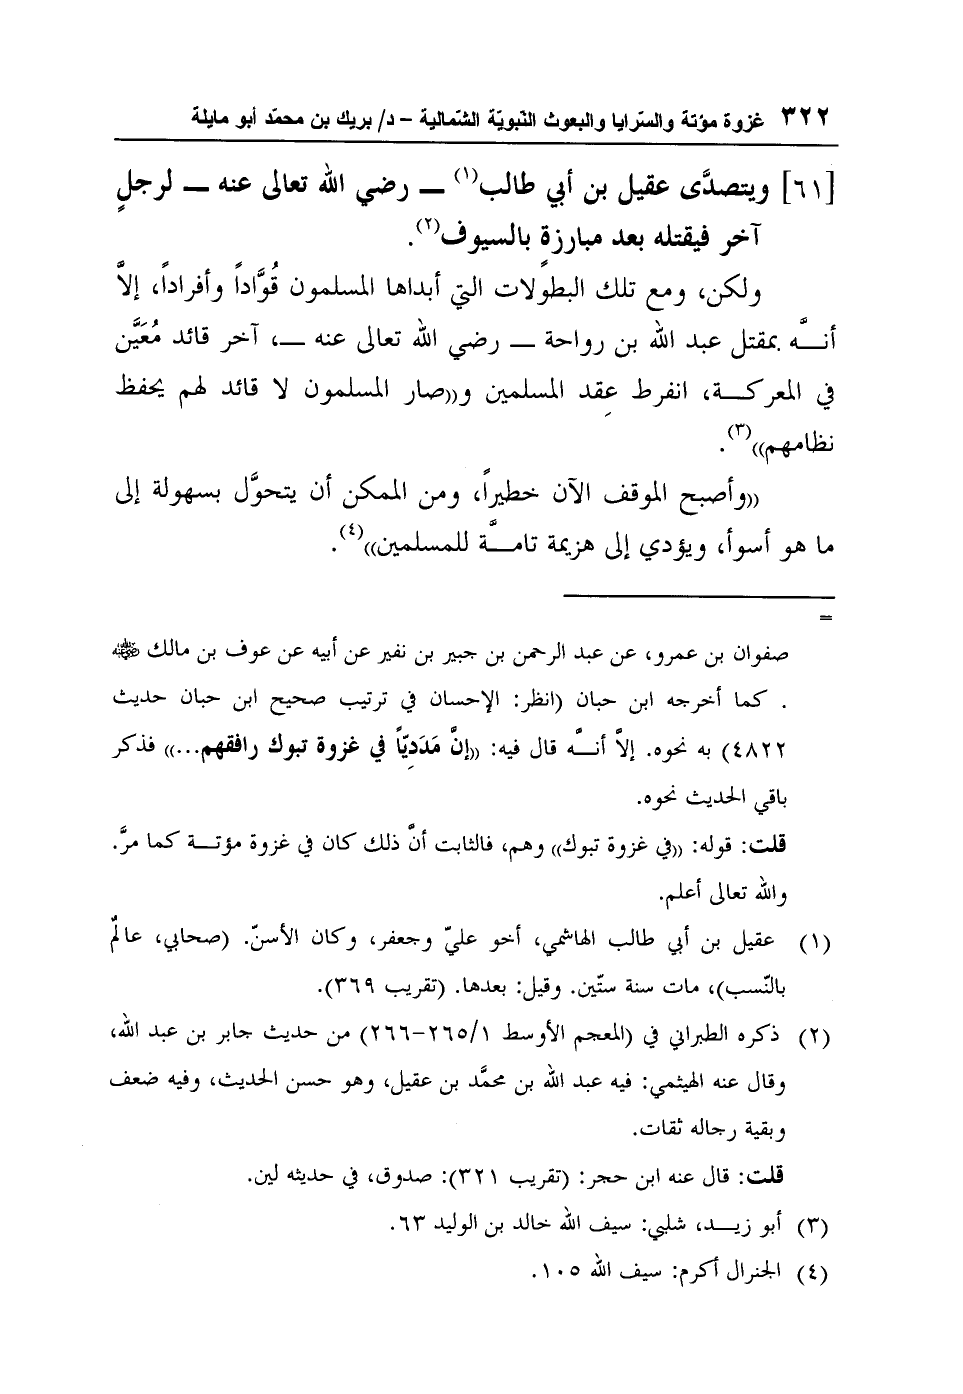 ٣٢٢ غزوة مؤتة والسّرايا والبعوث النّبويّة الشّمالية – د/ بريك بن محمّد أبو مايلة
[٦١] ويتصدَّى عقيل بن أبي طالب(١) ــ رضي الله تعالى عنه ــ لرجلٍ
آخر فيقتله بعد مبارزةٍ بالسيوف(٢).
ولكن، ومع تلك البطولات التي أبداها المسلمون قُوَّاداً وأفراداً، إلاَّ
أنـــَّه بمقتل عبد الله بن رواحة ــ رضي الله تعالى عنه ــ، آخر قائد مُعَيَّن
في المعركـــة، انفرط عِقد المسلمين و((صار المسلمون لا قائد لهم يحفظ
نظامهم))(٣).
((وأصبح الموقف الآن خطيراً، ومن الممكن أن يتحوَّل بسهولة إلى
ما هو أسوأ، ويؤدي إلى هزيمة تامـــَّة للمسلمين))(٤).
=
صفوان بن عمرو، عن عبد الرحمن بن جبير بن نفير عن أبيه عن عوف بن مالك ﵁
. كما أخرجه ابن حبان (انظر: الإحسان في ترتيب صحيح ابن حبان حديث
٤٨٢٢) به نحوه. إلاَّ أنـــَّه قال فيه: ((إنَّ مَدَدِيّاً في غزوة تبوك رافقهم...)) فذكر
باقي الحديث نحوه.
قلت: قوله: ((في غزوة تبوك)) وهم، فالثابت أنَّ ذلك كان في غزوة مؤتـــة كما مرَّ.
والله تعالى أعلم.
(١) عقيل بن أبي طالب الهاشمي، أخو عليّ وجعفر، وكان الأسنّ. (صحابي، عالمٌ
بالنّسب)، مات سنة ستّين. وقيل: بعدها. (تقريب ٣٦٩).
(٢) ذكره الطبراني في (المعجم الأوسط ٢٦٥/١-٢٦٦) من حديث جابر بن عبد الله،
وقال عنه الهيثمي: فيه عبد الله بن محمَّد بن عقيل، وهو حسن الحديث، وفيه ضعف
وبقية رجاله ثقات.
قلت: قال عنه ابن حجر: (تقريب ٣٢١): صدوق، في حديثه لين.
(٣) أبو زيـــد، شلبي: سيف الله خالد بن الوليد ٦٣.
(٤) الجنرال أكرم: سيف الله ١٠٥.